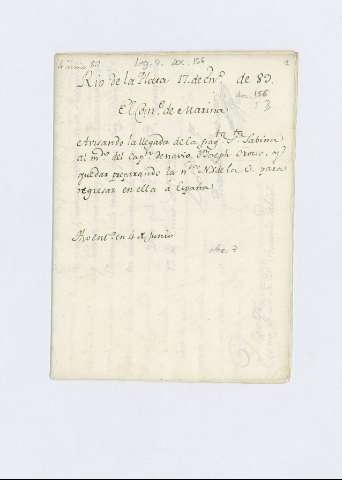 Leg. 9. doc. 156
Rio de la Plata 17. de En.º de 83.
doc. 156
3
El Com.º de Marina
Avisando la llegada de la frag.ta S.ta Sabina
al m.do del Cap.n de navio, D. Joseph Orozco, y
quedar preparando la N.S. de la O. para
regresar en ella à España
en 4 de Junio